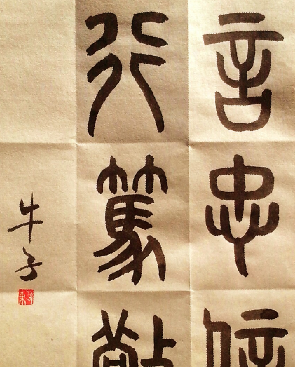 言忠信
行篤敬
牛子